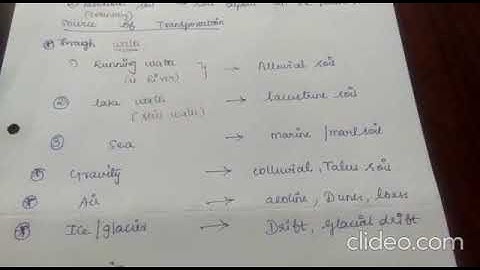 (Sedentary)
Source of Transportation
Through water
1) Running water → Alluvial soil
(or River)
2 Lake water → lacustrine soil
(still water)
3 Sea → marine / marl soil
Gravity → colluvial, Talus soil
Air → aeoline, Dunes, loess
Ice/glacier → Drift, glacial drift
clideo.com